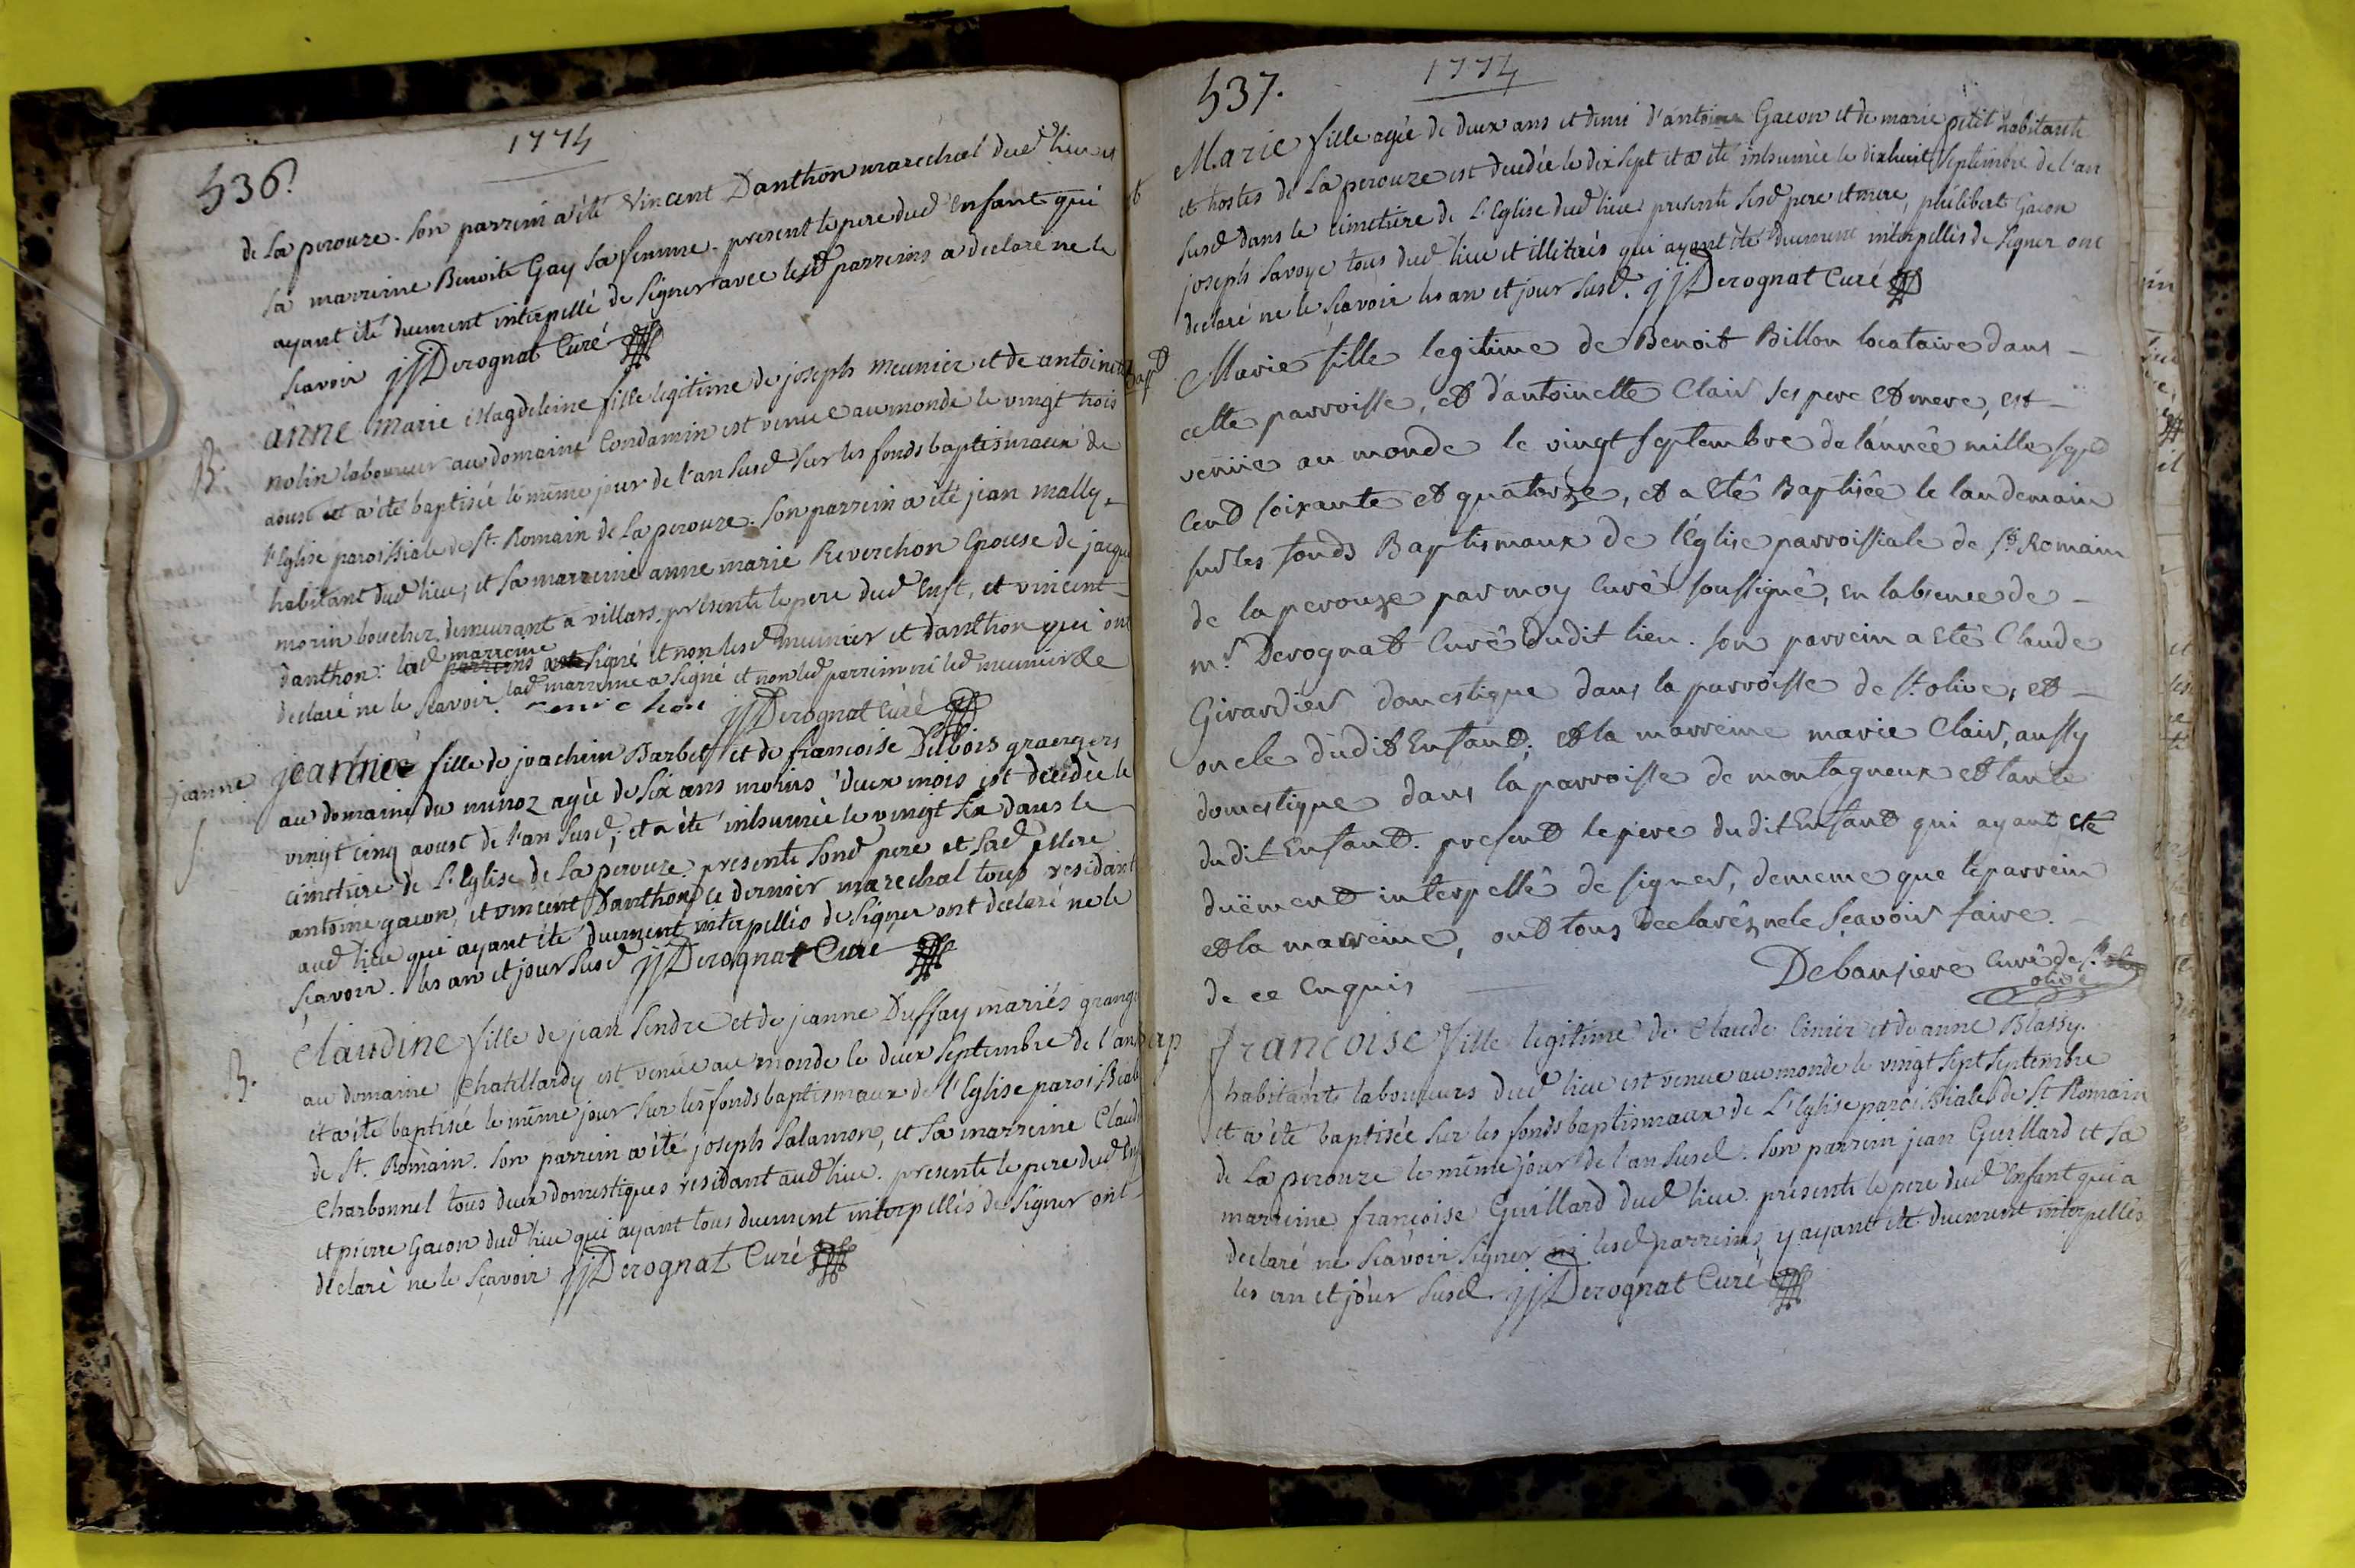 536.
1774
de La perouze. Son parrein a été Vincent Danthon marechal dud lieu et
sa marreine Benoite Gay sa femme. present le pere dud Enfant qui
ayant été duement interpellé de signer avec lesd parreins a declaré ne le
scavoir jj Derognat Curé
B.
anne marie Magdeleine fille legitime de joseph meunier et de antoinette
nolin laboureur au domaine Condamin est venue au monde le vingt trois
aoust et a été baptisée le même jour de l'an susd sur les fonds baptismaux de
l'Eglise paroissiale de St. Romain de La perouze. Son parrein a été jean mally
habitant dud lieu, et sa marreine anne marie Reverchon Epouse de jacque
morin boucher demeurant a villars, presents le pere dud Enft, et vincent
danthon. lad marreine signé et non lesd meunier et danthon qui ont
declaré ne le scavoir. lad marreine a signé et non led parrein ni led meunier
jj Derognat Curé
jeanne
jeanne fille de joachim Barbet et de francoise Dubois grangers
au domaine du munoz agée de six ans moins deux mois est decedée le
vingt cinq aoust de l'an susd, et a été inhumée le vingt six dans le
cimetiere de L'Eglise de La perouze. presents sond pere et sad Mere
antoine gacon, et vincent Danthon ce dernier marechal tous residant
aud lieu qui ayant été duement interpellés de signer ont declaré ne le
scavoir. les an et jour susd jj Derognat Curé
B.
Claudine fille de jean Sindre et de jeanne Duffay mariés grange
au domaine Chatillardy est venüe au monde le deux septembre de l'an
et a été baptisée le même jour sur les fonds baptismaux de l'Eglise paroissiale
de St. Romain. Son parrein a été joseph Salamon, et sa marreine Claud
Charbonnel tous deux domestiques residant aud lieu. presents le pere dud Enf
et pierre Gacon dud lieu qui ayant tous duement interpellés de signer ont
declaré ne le scavoir jj Derognat Curé
537.
1774
Marie fille agée de deux ans et demi d'antoine Gacon et de marie petit habitants
et hostes de La perouze est decedée le dix sept et a été inhumée le dixhuit septembre de l'an
susd dans le cimetiere de L'Eglise dud lieu presents sesd pere et mere, philibert Gacon
joseph Savoye tous dud lieu et illiterés qui ayant été duement interpellés de signer ont
declaré ne le scavoir les an et jour susd. jj Derognat Curé
Bapt
Marie fille legitime de Benoit Billon locataire dans
cette parroisse, et d'antoinette Clair ses pere et mere, est
venüe au monde le vingt septembre de l'année mille sept
cent soixante et quatorze, et a eté Baptisée le landemain
sur les fonds Baptismaux de l'Eglise parroissiale de St Romain
de la perouze par moy curé soussigné, en l'absence de
mr. Derognat Curé dudit lieu. son parrein a eté Claude
Girardier domestique dans la parroisse de St. olive, et
oncle dudit Enfant, et la marreine marie Clair, aussy
domestique dans la parroisse de montagneux et tante
dudit Enfant. present le pere dudit Enfant qui ayant eté
duëment interpellé de signer, de meme que le parrein
et la marreine, ont tous declarés ne le scavoir faire
de ce Enquis
Debausiere curé de St.
olive
Bap
francoise fille legitime de Claude Cinier et de anne Blassy
habitants laboureurs dud lieu est venue au monde le vingt sept septembre
et a été baptisée sur les fonds baptismaux de L'Eglise paroissiale de St Romain
de La perouze le même jour de l'an susd. Son parrein jean Guillard et sa
marreine francoise Guillard dud lieu. presents le pere dud Enfant qui a
declaré ne scavoir signer ni lesd parreins, y ayant été duement interpellés
les an et jour susd. jj Derognat Curé